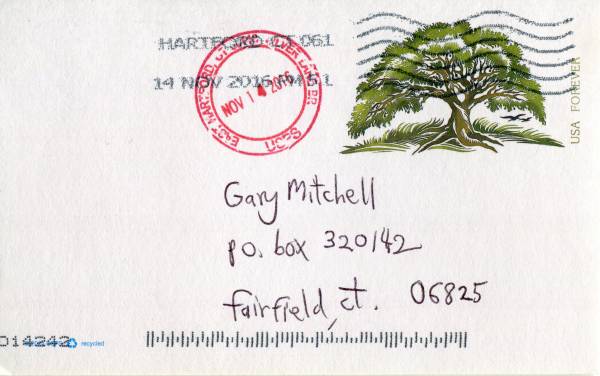 HARTFORD CT 061
14 NOV 2016 PM 5 L
EAST HARTFORD, CT SILVER LANE BR
NOV 14 2016
USPS
USA FOREVER
Gary Mitchell
P.O. box 320142
fairfield, ct. 06825
014242
recycled